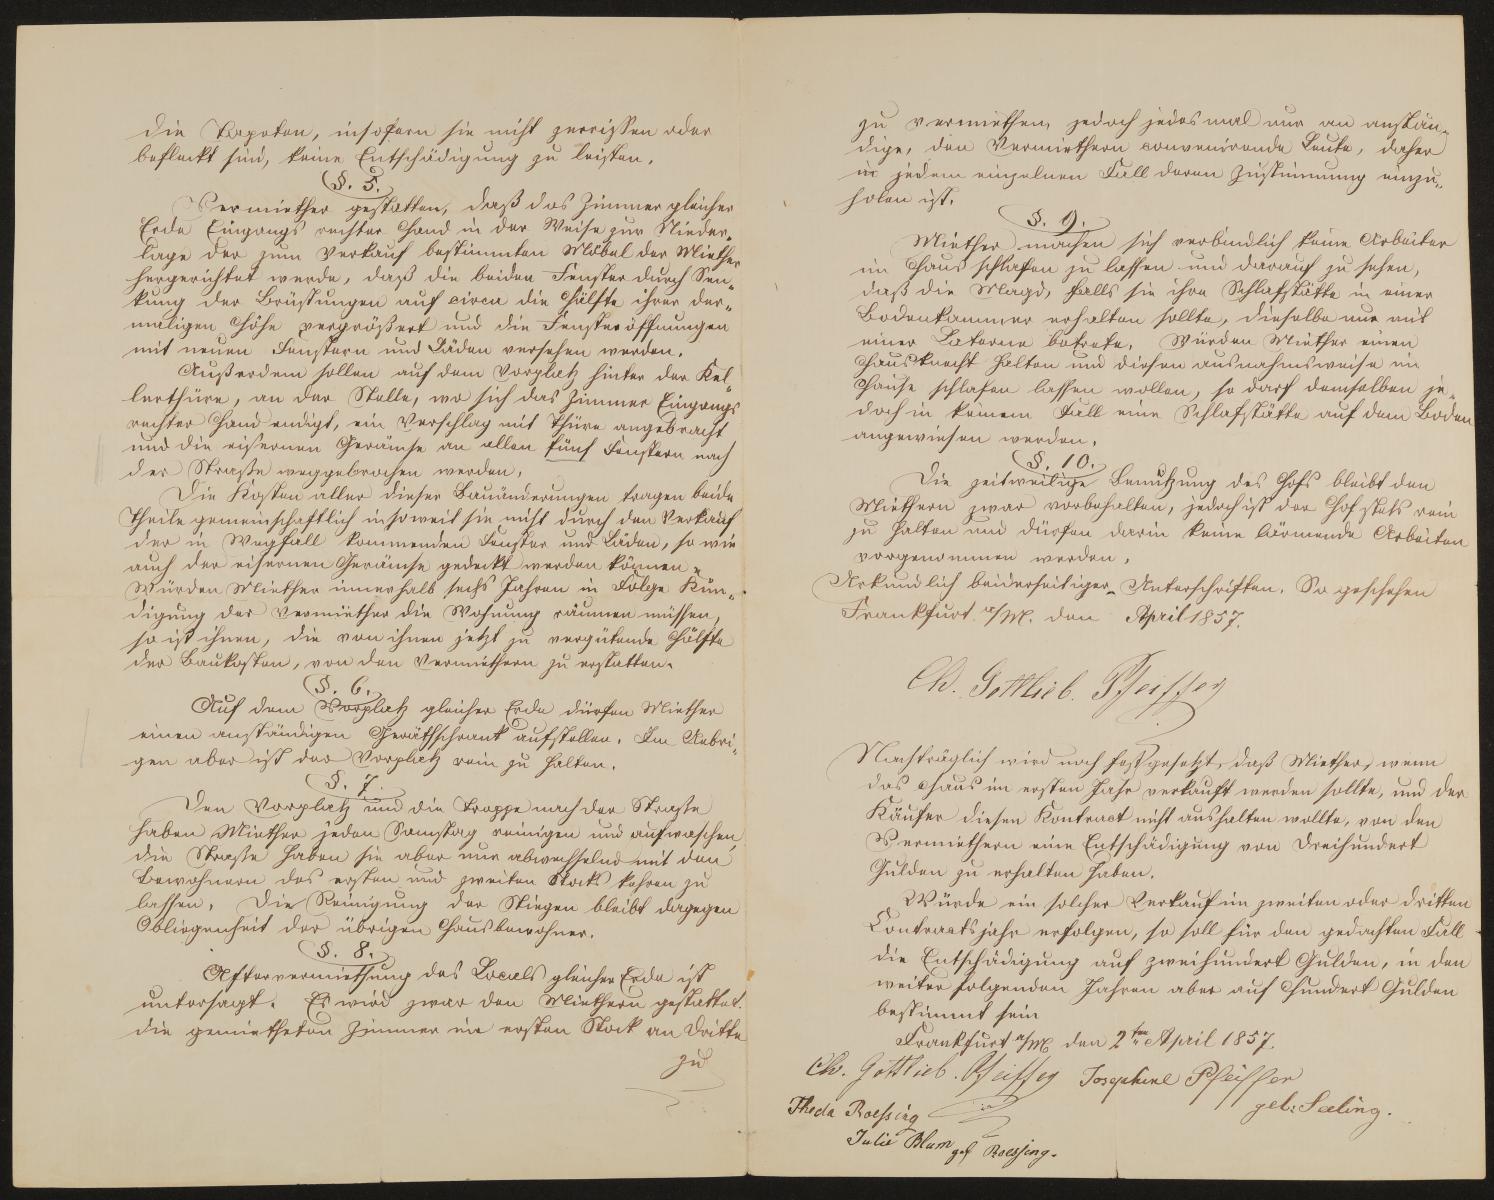 die Tapeten, insofern sie nicht zerrissen oder
befleckt sind, keine Entschädigung zu leisten.
§. 5.
Vermiether gestatten, daß das Zimmer gleicher
Erde Eingangs rechter Hand in der Weise zur Nieder-
lage der zum Verkauf bestimmten Möbel der Miether
hergerichtet werde, daß die beiden Fenster durch Sen-
kung der Brüstungen auf circa die Hälfte ihrer der-
maligen Höhe vergrößert und die Fensteröffnungen
mit neuen Fenstern und Läden versehen werden.
Außerdem sollen auf dem Vorplatz hinter der Kel-
lerthüre, an der Stelle, wo sich das Zimmer Eingangs
rechter Hand endigt, ein Verschlag mit Thüre angebracht
und die eisernen Gerämse an allen fünf Fenstern nach
der Straße weggebrochen werden.
Die Kosten aller dieser Bauänderungen tragen beide
Theile gemeinschaftlich insoweit sie nicht durch den Verkauf
der in Wegfall kommenden Fenster und Läden, so wie
auch der eisernen Gerämse gedeckt werden können.
Würden Miether innerhalb sechs Jahren in Folge Kün-
digung der Vermiether die Wohnung räumen müssen,
so ist ihnen, die von ihnen jetzt zu vergütende Hälfte
der Baukosten, von den Vermiethern zu erstatten.
§. 6.
Auf dem Vorplatz gleicher Erde dürfen Miether
einen anständigen Geräthschrank aufstellen. Im Uebri-
gen aber ist der Vorplatz rein zu halten.
§. 7.
Den Vorplatz und die Treppe nach der Straße
haben Miether jeden Samstag reinigen und aufwaschen,
die Straße haben sie aber nur abwechselnd mit den
Bewohnern des ersten und zweiten Stocks kehren zu
lassen. Die Reinigung der Stiegen bleibt dagegen
Obliegenheit der übrigen Hausbewohner.
§. 8.
Aftervermiethung des Locals gleicher Erde ist
untersagt. Es wird zwar den Miethern gestattet
die gemietheten Zimmer im ersten Stock an Dritte
zu
zu vermiethen, jedoch jedesmal nur an anstän-
dige, den Vermiethern convenirende Leute, daher
in jedem einzelnen Fall deren Zustimmung einzu-
holen ist.
§. 9.
Miether machen sich verbindlich keine Arbeiter
im Haus schlafen zu lassen und darauf zu sehen,
daß die Magd, falls sie ihre Schlafstätte in einer
Bodenkammer erhalten sollte, dieselbe nur mit
einer Laterne betrete. Würden Miether einen
Hausknecht halten und diesen ausnahmsweise im
Hause schlafen lassen wollen, so darf demselben je-
doch in keinem Fall eine Schlafstätte auf dem Boden
angewiesen werden.
§. 10.
Die zeitweilige Benutzung des Hofs bleibt den
Miethern zwar vorbehalten, jedoch ist der Hof stets rein
zu halten und dürfen darin keine lärmende Arbeiten
vorgenommen werden.
Urkundlich beiderseitiger Unterschriften. So geschehen
Frankfurt a/M. den April 1857.
Ch. Gottlieb. Pfeiffer
Nachträglich wird noch festgesetzt, daß Miether, wenn
das Haus im ersten Jahr verkauft werden sollte, und der
Käufer diesen Kontract nicht aushalten wollte, von den
Vermiethern eine Entschädigung von Dreihundert
Gulden zu erhalten haben.
Würde ein solcher Verkauf im zweiten oder dritten
Contractsjahr erfolgen, so soll für den gedachten Fall
die Entschädigung auf zweihundert Gulden, in den
weiter folgenden Jahren aber auf Hundert Gulden
bestimmt sein
Frankfurt a/M den 2ten April 1857.
Ch. Gottlieb. Pfeiffer Josephine Pfeiffer
geb: Saeling.
Theda Roessing
Julie Blum geb Roessing.